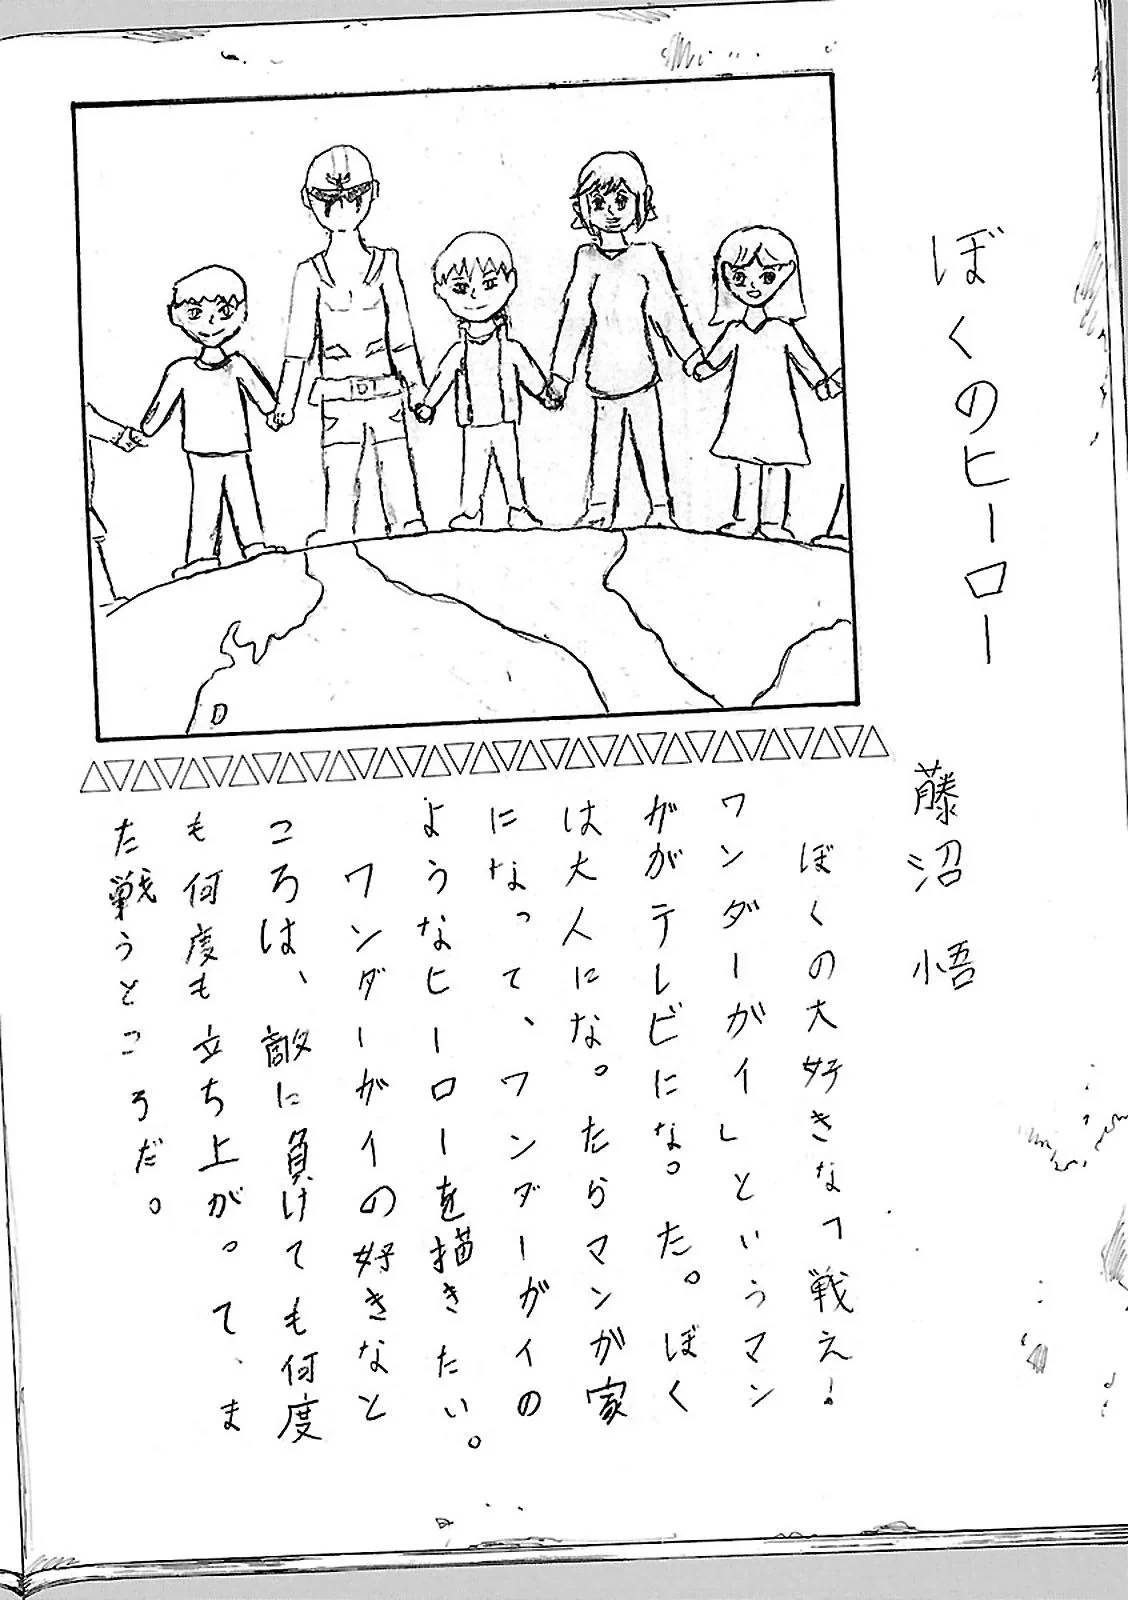 ぼくのヒーロー
藤沼 悟
ぼくの大好きな「戦え!
ワンダーガイ」というマン
ががテレビになった。ぼく
は大人になったらマンガ家
になって、ワンダーガイの
ようなヒーローを描きたい。
ワンダーガイの好きなと
ころは、敵に負けても何度
も何度も立ち上がって、ま
た戦うところだ。